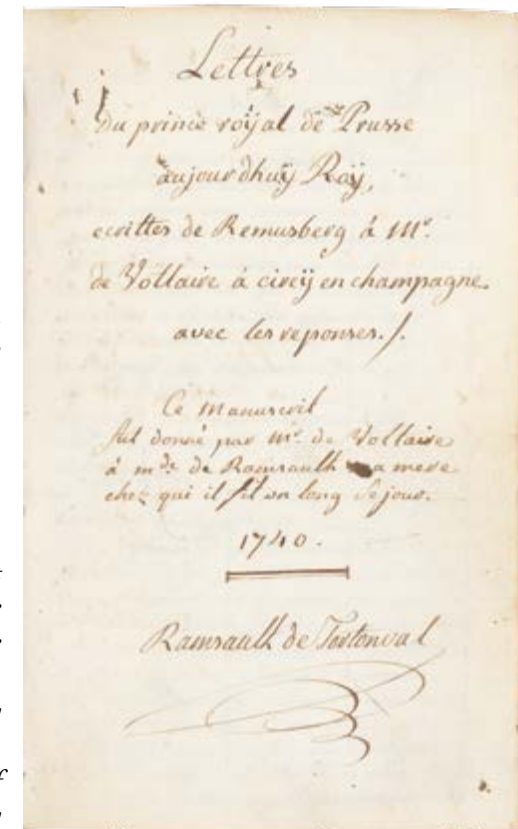 Lettres
Du prince roÿal de Prusse
aujourdhuÿ Roÿ,
ecrittes de Remusberg à Mr.
de Voltaire à cireÿ en champagne.
avec les reponses./.
Ce Manuscrit
fut donné par Mr. de Voltaire
à mde. de Ramsault ma mere
chez qui il fit un long Sejour.
1740.
Ramsault de Tortonval